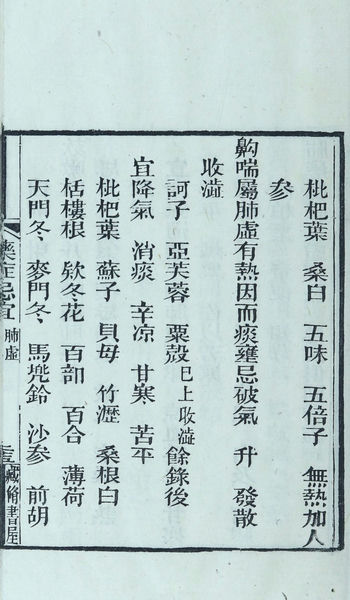 枇杷葉　桑白　五味　五倍子　無熱加人
參
齁喘屬肺虛有熱因而痰壅忌破氣　升　發散
收澁
訶子　亞芙蓉　粟殼已上收澁餘錄後
宜降氣　消痰　辛凉　甘寒　苦平
枇杷葉　蘇子　貝母　竹瀝　桑根白
栝樓根　欵冬花　百部　百合　薄荷
天門冬　麥門冬　馬兠鈴　沙參　前胡
藥症忌宜　肺虛　藏脩書屋